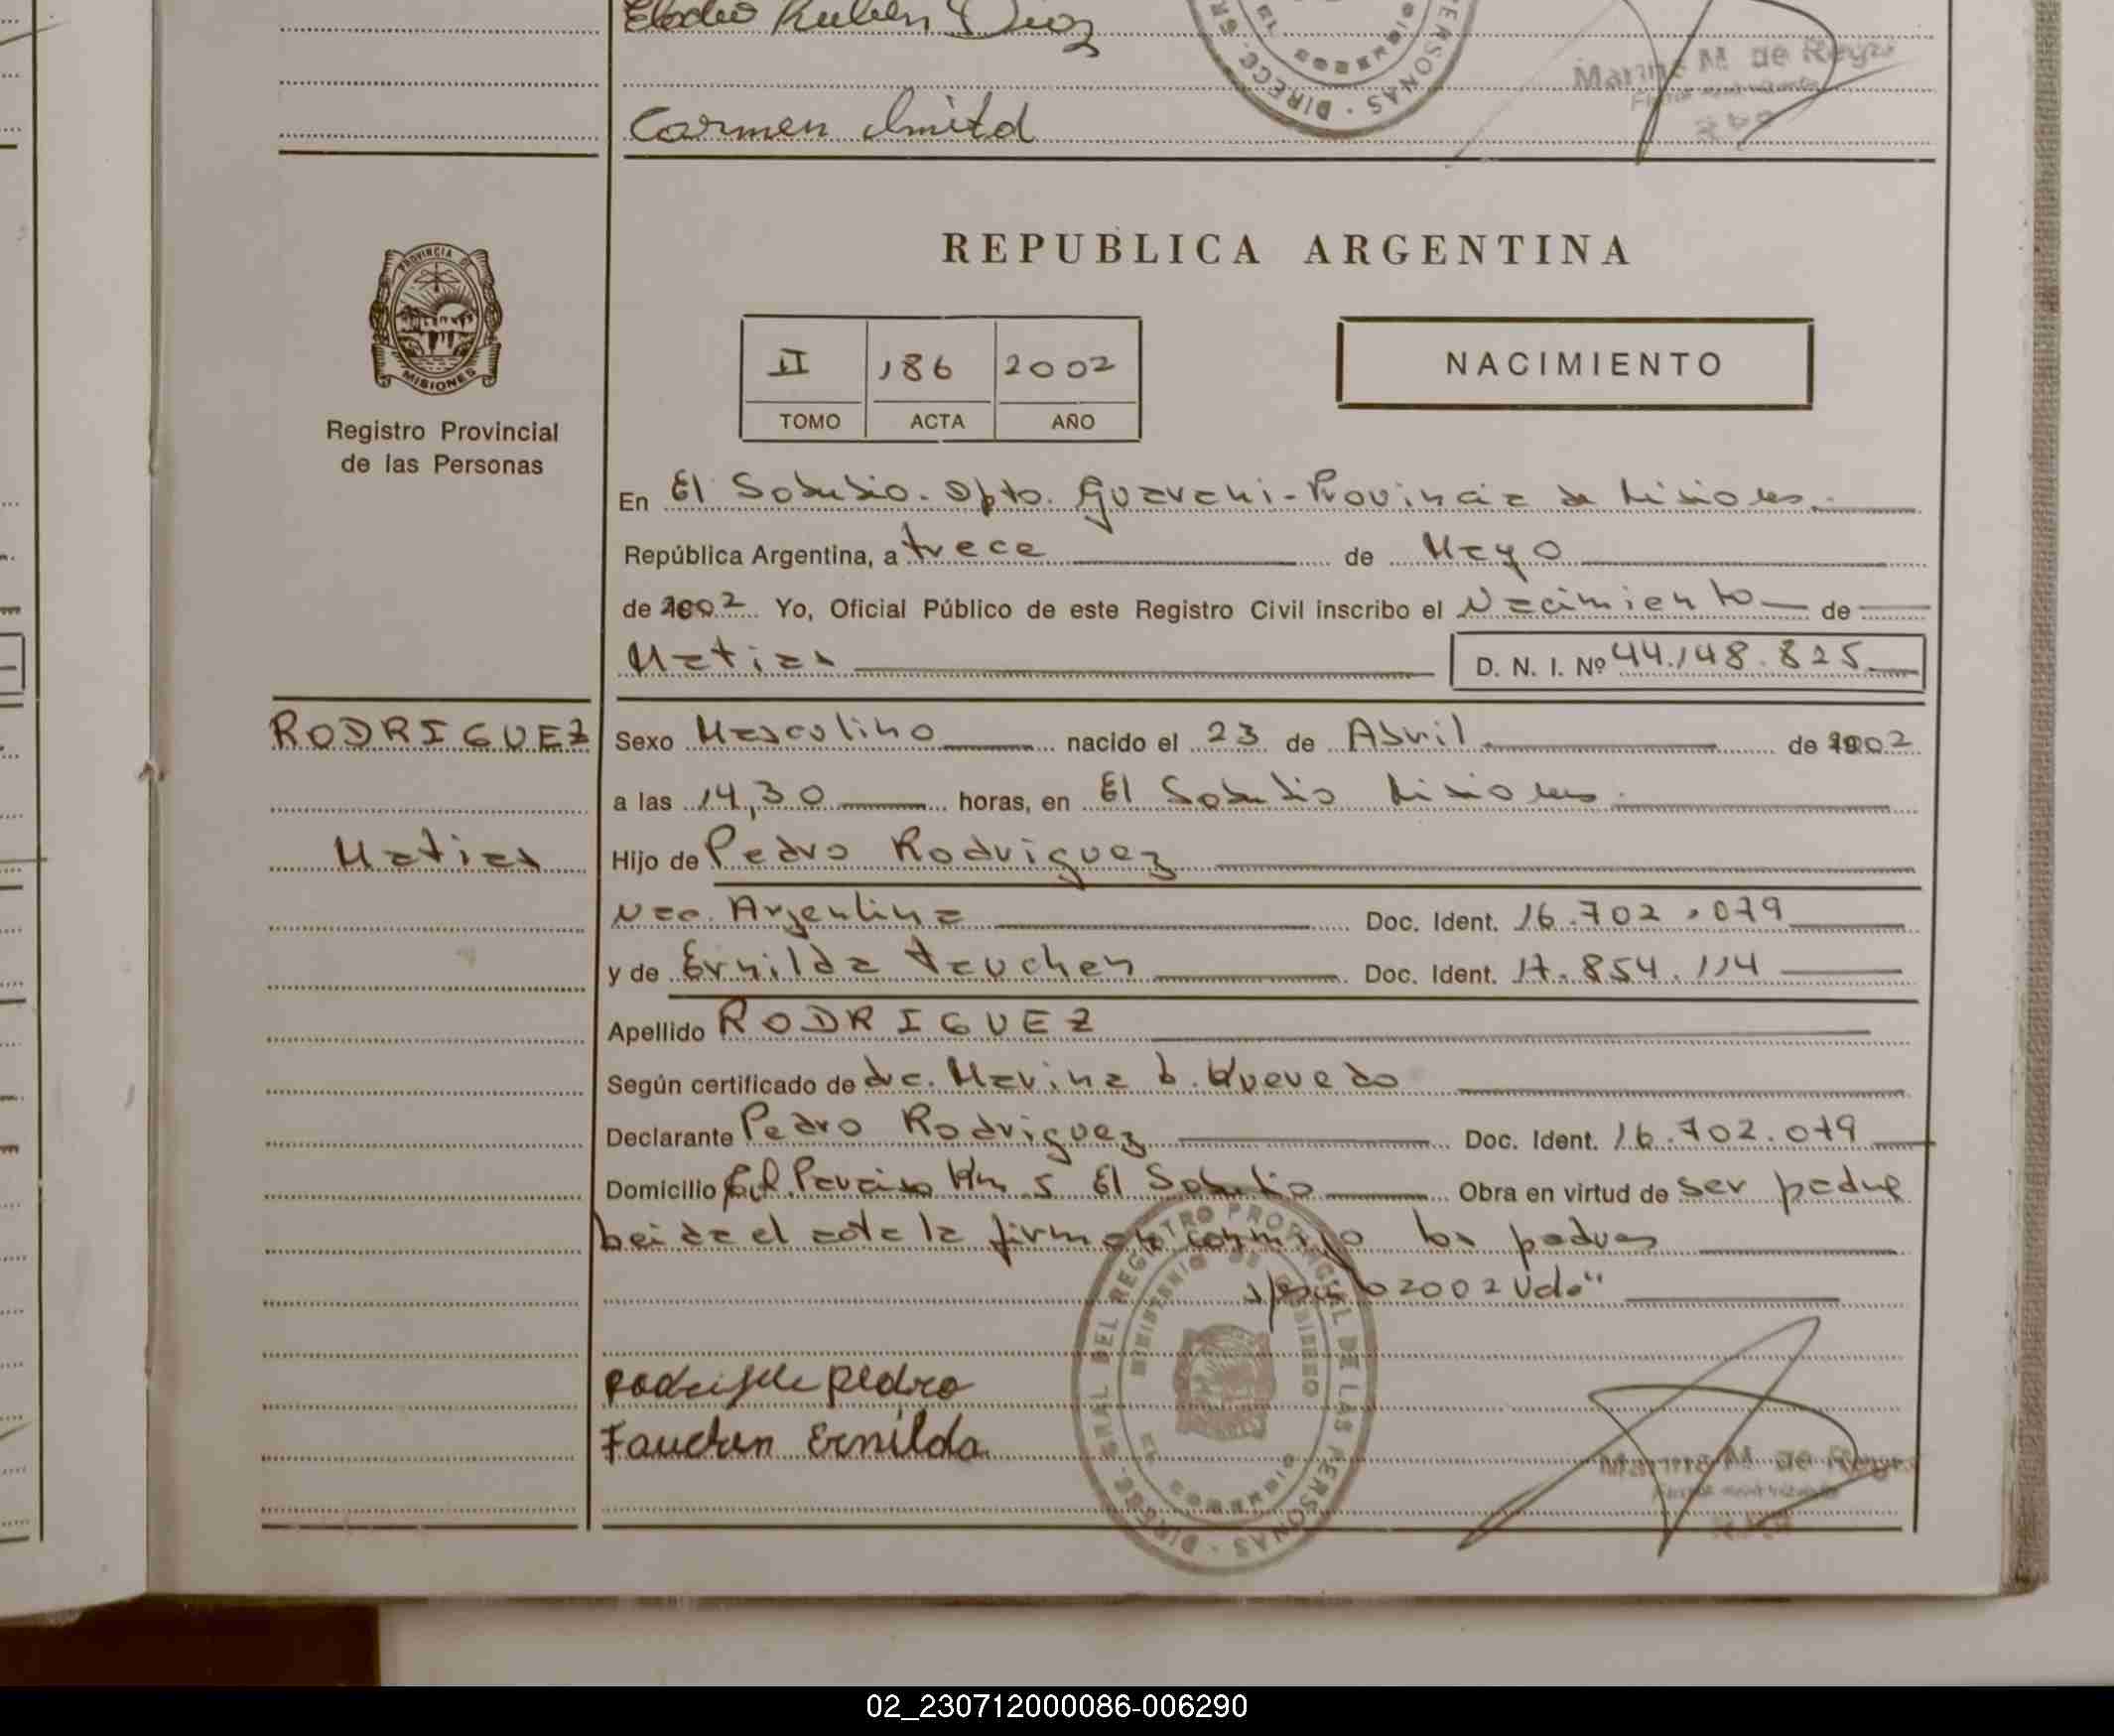 Ruben Dioz
Carmen
DIRECC GRAL DEL REGISTRO PROVINCIAL DE LAS PERSONAS
Marina M de Reyes
PROVINCIA DE
MISIONES
Registro Provincial
de las Personas
REPUBLICA ARGENTINA
II 186 2002
TOMO ACTA AÑO
NACIMIENTO
En El Soberbio. Dpto. Guarani - Provincia de Misiones.
República Argentina, a trece de Mayo
de 2002 Yo, Oficial Público de este Registro Civil inscribo el Nacimiento de
Matias D. N. I. Nº 44.148.825
RODRIGUEZ
Matias
Sexo Masculino nacido el 23 de Abril de 2002
a las 14,30 horas, en El Soberbio Misiones.
Hijo de Pedro Rodriguez
Nac. Argentina Doc. Ident. 16.702.079
y de Ernilda Fauchen Doc. Ident. 17.854.114
Apellido RODRIGUEZ
Según certificado de Marina
Declarante Pedro Rodriguez Doc. Ident. 16.702.079
Domicilio Col. Paraiso Km 5 El Soberbio Obra en virtud de ser padre
Leida el acta la firman conmigo los padres
2002 Vale"
pedro
Fauchen Ernilda
DIRECC GRAL DEL REGISTRO PROVINCIAL DE LAS PERSONAS
MINISTERIO DE GOBIERNO
Marina M de Reyes
02_230712000086-006290